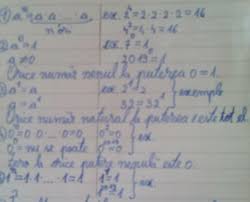 1) a^n = a·a·...·a   ex. 2^4 = 2·2·2·2 = 16
n ori   4^2 = 4·4 = 16
2) a^0 = 1   ex. 7^0 = 1
a ≠ 0   2013^0 = 1
Orice număr nenul la puterea 0 = 1.
a^1 = a   ex. 2^1 = 2
32^1 = 32   exemple
Orice număr natural la puterea 1 este tot el.
0^n = 0·0·...·0 = 0   ex.
0^0 = nu se poate
zero la orice putere nenulă este 0.
1^n = 1·1·...·1 = 1   1^1 = 1   ex.